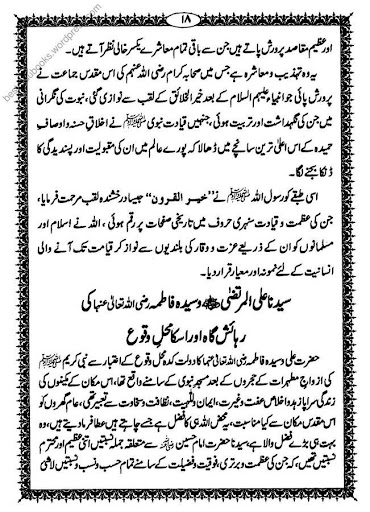 ۱۸
اور عظیم مقاصد پرورش پاتے ہیں جن سے باقی تمام معاشرے یکسر خالی نظر آتے ہیں۔
یہ وہ تہذیب و معاشرہ ہے جس میں صحابہ کرام رضی اللہ عنہم کی اس مقدس جماعت نے
پرورش پائی جو انبیاء علیہم السلام کے بعد خیر الخلائق کے لقب سے نوازی گئی، نبوت کی نگرانی
میں جن کی نگہداشت اور تربیت ہوئی، جنہیں قیادت نبوی ﷺ نے اخلاق حسنہ و اوصاف
حمیدہ کے اس اعلیٰ ترین سانچے میں ڈھالا کہ پورے عالم میں ان کی مقبولیت اور پسندیدگی کا
ڈنکا بجنے لگا۔
اسی طبقے کو رسول اللہ ﷺ نے "خیر القرون" جیسا درخشندہ لقب مرحمت فرمایا،
جن کی عظمت و قیادت سنہری حروف میں تاریخی صفحات پر رقم ہوئی، اللہ نے اسلام اور
مسلمانوں کو ان کے ذریعے عزت و وقار کی بلندیوں سے نواز کر قیامت تک آنے والی
انسانیت کے لئے نمونہ اور معیار قرار دیا۔
سیدنا علی المرتضیٰ رضی اللہ عنہ و سیدہ فاطمہ رضی اللہ تعالیٰ عنہا کی
رہائش گاہ اور اسکا محل وقوع
حضرت علی و سیدہ فاطمہ رضی اللہ تعالیٰ عنہما کا دولت کدہ محل وقوع کے اعتبار سے نبی کریم ﷺ
کی ازواج مطہرات کے حجروں کے بعد مسجد نبوی کے سامنے واقع تھا، اس مکان کے مکینوں کی
زندگی سراپا زہد و اخلاص عفت و غیرت، ایمان و للہیت، نظافت و سخاوت سے تعبیر تھی، عام گھروں کو
اس مقدس مکان سے کیا مناسبت، یہ محض اللہ ہی کا فضل ہے جسے چاہتے ہیں عطا فرما دیتے ہیں، وہ
بہت ہی بڑے فضل والا ہے، سیدنا حضرت امام حسین رضی اللہ عنہ سے متعلقہ جملہ نسبتیں اتنی عظیم اور محترم
نسبتیں تھیں، کہ جن کی عظمت و برتری، فوقیت و فضیلت کے سامنے تمام حسب و نسب و نسبتیں لاشی